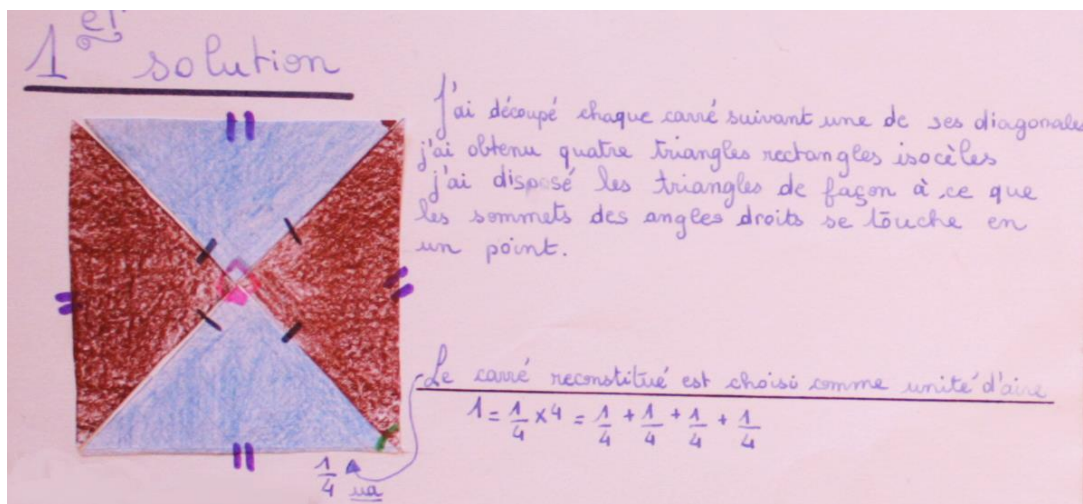 1er solution
J'ai découpé chaque carré suivant une de ses diagonales
j'ai obtenu quatre triangles rectangles isocèles
j'ai disposé les triangles de façon à ce que
les sommets des angles droits se touche en
un point.
Le carré reconstitué est choisi comme unité d'aire
1 = 1/4 x 4 = 1/4 + 1/4 + 1/4 + 1/4
1/4 ua